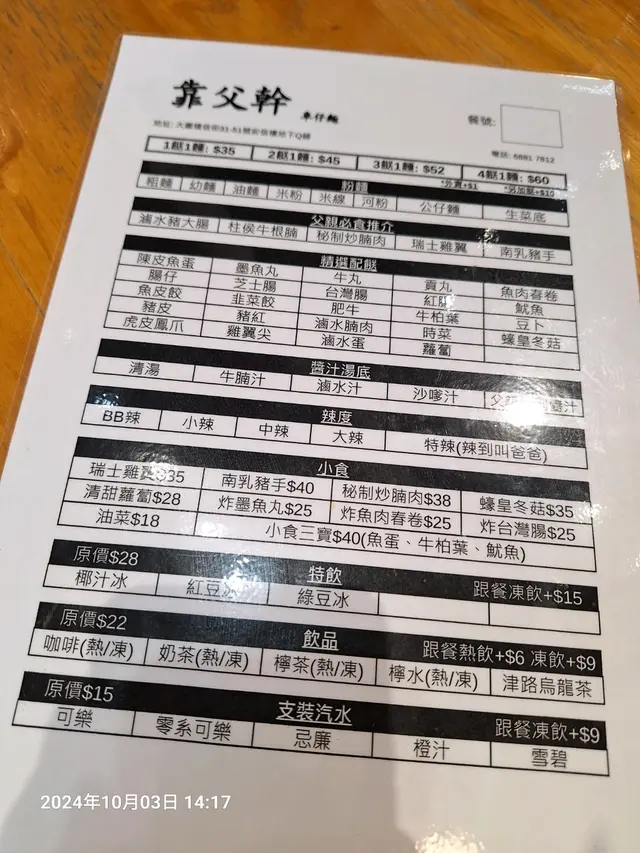 靠父幹 車仔麵
餐號:
地址: 大圍積信街31-51號街坊樓地下Q舖
電話: 6881 7812
1餸1麵: $35 2餸1麵: $45 3餸1麵: $52 4餸1麵: $60
粉麵 *外賣+$1 *另加餸+$10
粗麵 幼麵 油麵 米粉 米線 河粉 公仔麵 生菜底
父親必食推介
滷水豬大腸 柱侯牛根腩 秘制炒腩肉 瑞士雞翼 南乳豬手
精選配餸
陳皮魚蛋 墨魚丸 牛丸 貢丸 魚肉春卷
腸仔 芝士腸 台灣腸 紅腸 魷魚
魚皮餃 韭菜餃 肥牛 牛柏葉 豆卜
豬皮 豬紅 滷水腩肉 時菜 蠔皇冬菇
虎皮鳳爪 雞翼尖 滷水蛋 蘿蔔
醬汁湯底
清湯 牛腩汁 滷水汁 沙嗲汁
辣度
BB辣 小辣 中辣 大辣 特辣(辣到叫爸爸)
小食
瑞士雞翼$35 南乳豬手$40 秘制炒腩肉$38 蠔皇冬菇$35
清甜蘿蔔$28 炸墨魚丸$25 炸魚肉春卷$25 炸台灣腸$25
油菜$18 小食三寶$40(魚蛋、牛柏葉、魷魚)
原價$28 特飲 跟餐凍飲+$15
椰汁冰 紅豆冰 綠豆冰
原價$22 飲品 跟餐熱飲+$6 凍飲+$9
咖啡(熱/凍) 奶茶(熱/凍) 檸茶(熱/凍) 檸水(熱/凍) 津路烏龍茶
原價$15 支裝汽水 跟餐凍飲+$9
可樂 零系可樂 忌廉 橙汁 雪碧
2024年10月03日 14:17